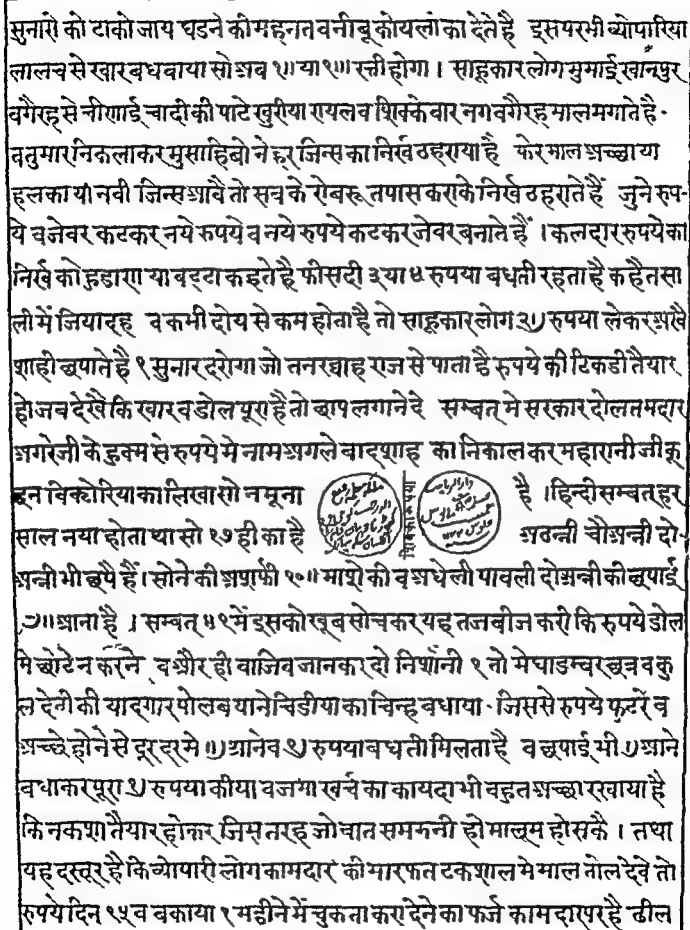 सुनारो को टाको जाय घडने की महनत वनी बू कोयलां का देते है इस पर भी व्योपारिया
लालच से खार बधवाया सो अब १॥ या १॥। रत्ती होगा । साहूकार लोग मुमाई खानपुर
वगैरह से चीणाई चादी की पाटे खुरीया रायल व शिक्केवार नग वगैरह माल मगाते है -
व तुमार निकला कर मुसाहिबो ने हर जिन्स का निर्ख ठहराया है फेर माल अच्छा या
हलका या नवी जिन्स आवै तो सब के रोबरू तपास करा के निर्ख ठहराते हैं जुने रुप-
ये व जेवर कटकर नये रुपये व नये रुपये कटकर जेवर बनाते हैं । कलदार रुपये का
निर्ख को हुडारण या बट्टा कहते है फी सदी ३ या ४ रुपया बधती रहता है कहैतसा
ली में जियादह व कभी दोय से कम होता है तो साहूकार लोग रुपया लेकर अखै
शाही छपाते है १ सुनार दरोगा जो तनरवाह राज से पाता है रुपये की टिकडी तैयार
हो जब देखै कि खार व डोल पूरा है तो छाप लगाने दे सम्बत् मे सरकार दोलतमदार
अगरेजी के हुक्म से रुपये मे नाम अगले बादशाह का निकाल कर महारानी जी कू
इन विक्टोरिया का लिखा सो नमूना है । हिन्दी सम्बत् हर
साल नया होता था सो १७ ही का है अठन्नी चौअन्नी दो-
अन्नी भी छपै हैं । सोने की अशर्फी १०॥ माशे की व अधेली पावली दो अन्नी की छपाई
आना है । सम्बत् ५९ में इसको खूब सोचकर यह तजबीज करी कि रुपये डोल
मे छोटे न करने व और ही वाजिब जानकर दो निशानी १ तो मेघाडम्बर छत्र व कु
ल देवी की यादगार पोलब याने चिडीया का चिन्ह वधाया - जिससे रुपये फूटरें व
अच्छे होने से दूर दूर मे आने व रुपया बधती मिलता है व छपाई भी आने
बधाकर पूरा रुपया कीया व जगा खर्च का कायदा भी बहुत अच्छा रखाया है
कि नकशा तैयार होकर जिस तरह जो बात समझनी हो मालूम हो सकै । तथा
यह दस्तूर है कि व्योपारी लोग कामदार की मारफत टकशाल मे माल तोल देवे तो
रुपये दिन १५ व बकाया १ महीने में चुकता करा देने का फर्ज कामदार पर है ढील